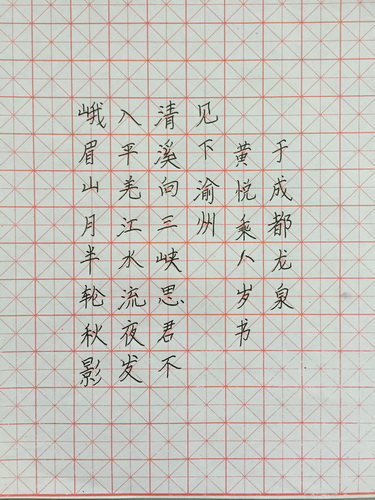 峨眉山月半轮秋影
入平羌江水流夜发
清溪向三峡思君不
见下渝州
黄悦乘八岁书
于成都龙泉